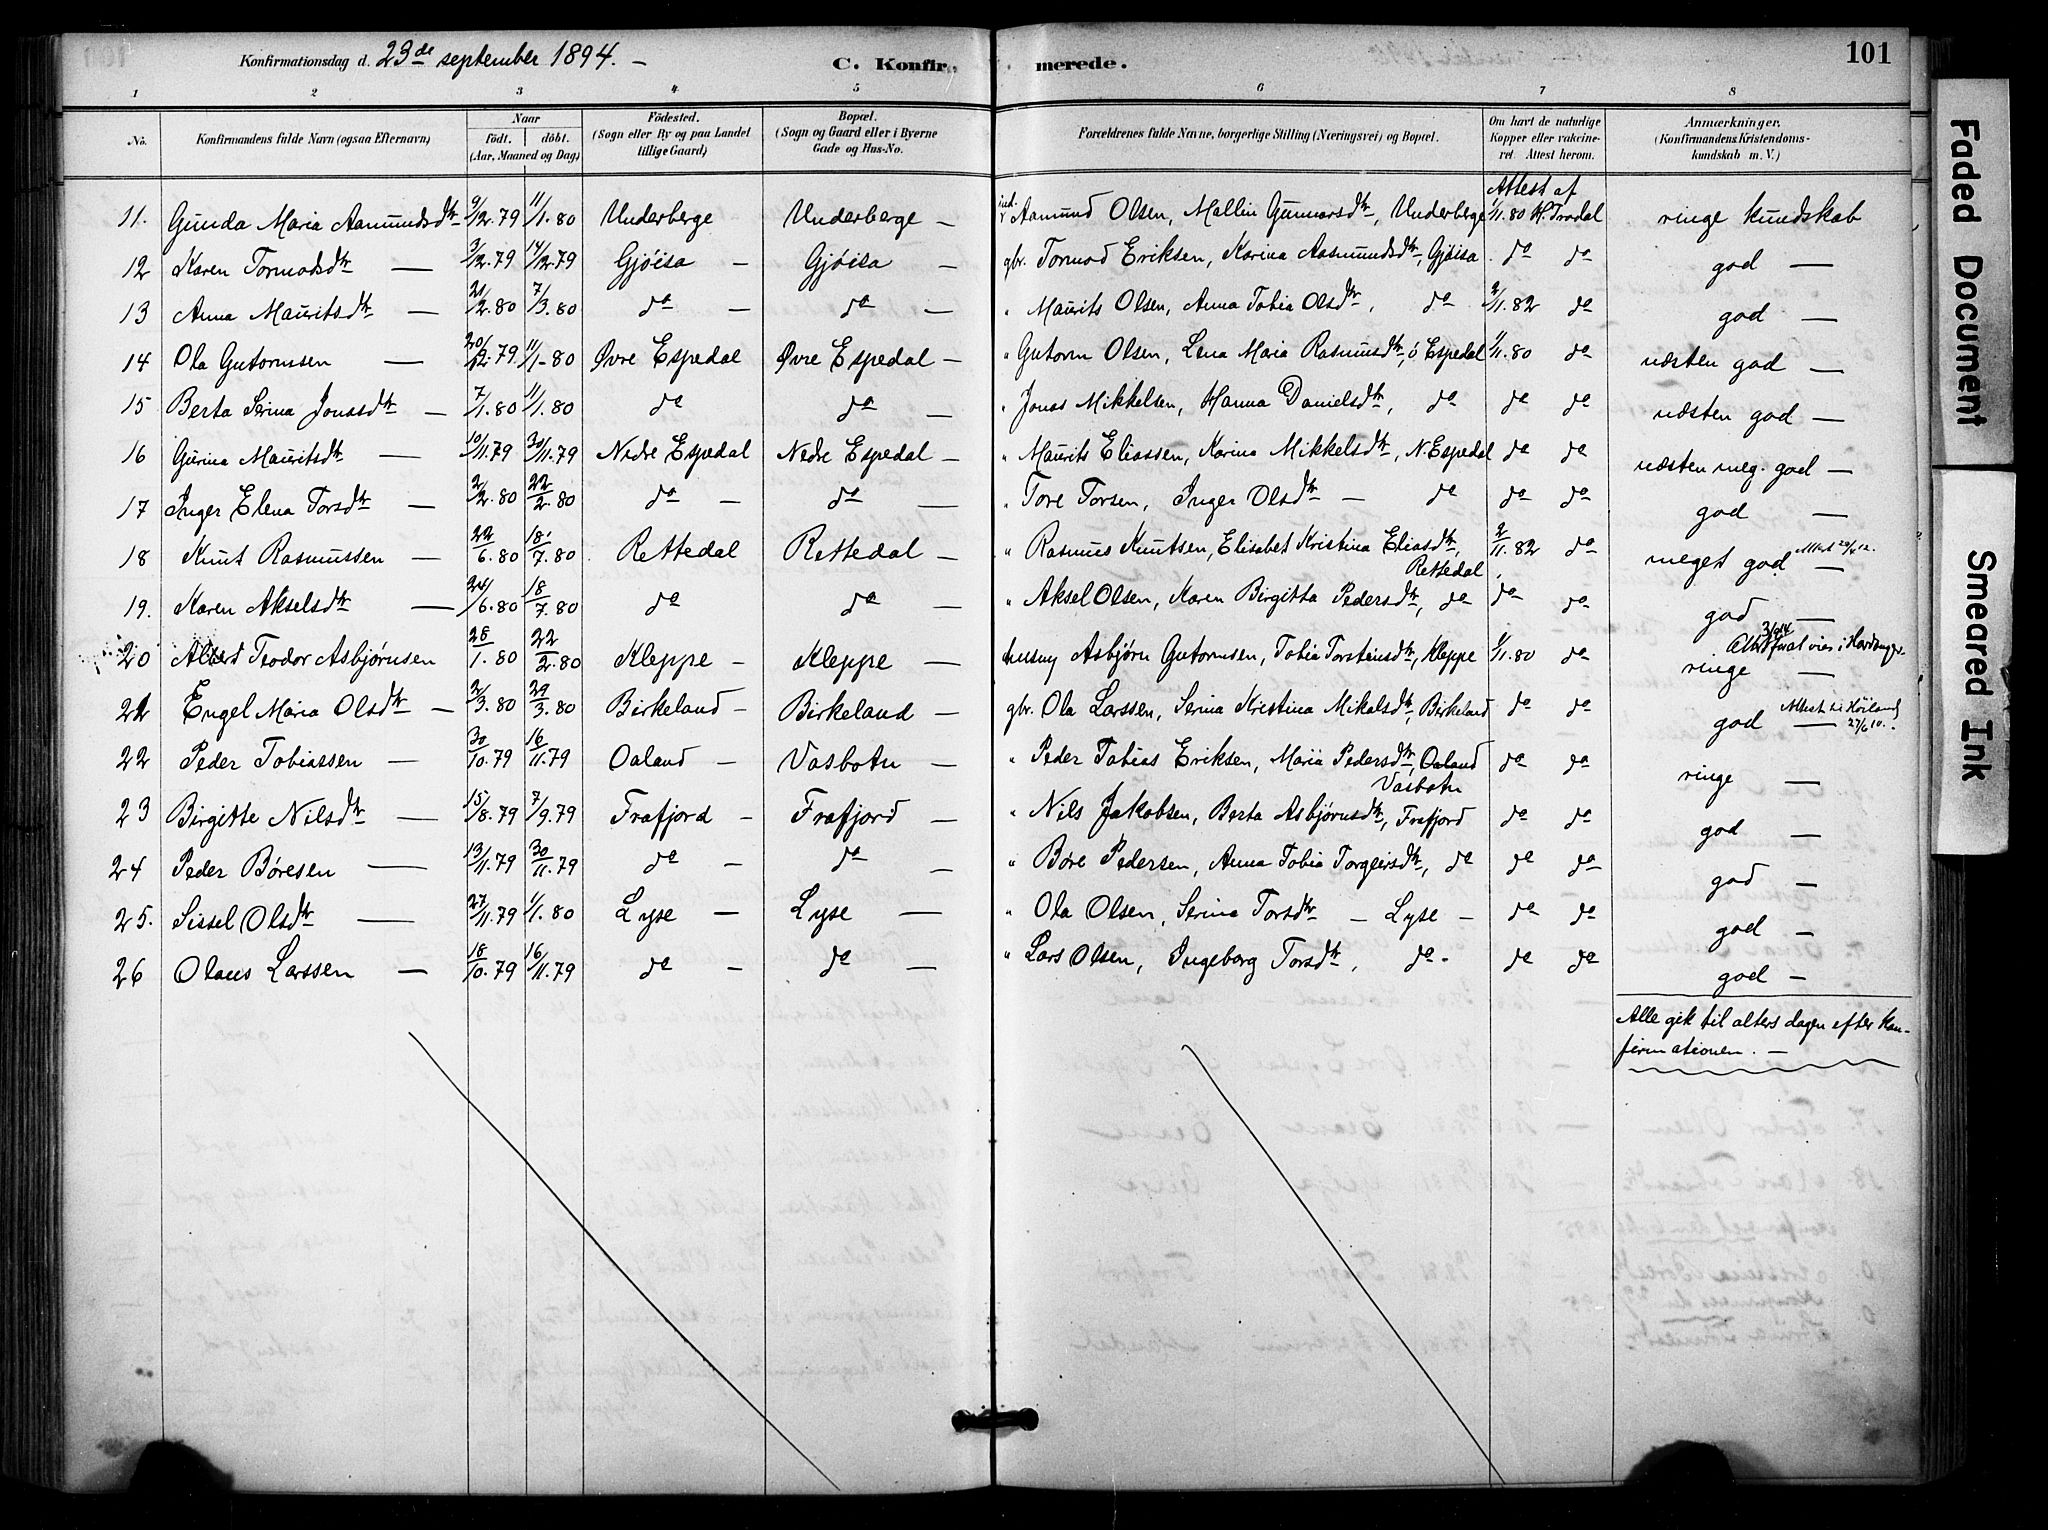 Konfirmationsdag d. 23de september 1894. —
C. Konfir- merede. 101
1 2 3 4 5 6 7 8
No. Konfirmandens fulde Navn (ogsaa Efternavn) Naar født. døbt. (Aar, Maaned og Dag) Fødested. (Sogn eller By og paa Landet tillige Gaard) Bopæl. (Sogn og Gaard eller i Byerne Gade og Hus-No. Forældrenes fulde Navne, borgerlige Stilling (Næringsvei) og Bopæl. Om havt de naturlige Kopper eller vakcineret. Attest herom. Anmærkninger. (Konfirmandens Kristendomskundskab m. V.)
Attest af
11. Gunda Maria Aamundsdtr 9/12.79 11/1.80 Underberge Underberge — Aamund Olsen, Mallin Gunnarsdtr, Underberge 1/11.80 H. Trodal ringe kundskab
12 Karen Tormodsdtr — 3/12.79 14/12.79 Gjöisa — Gjöisa — gbr. Tormod Eriksen, Karina Aasmundsdtr, Gjöisa. do do god —
13 Anna Mauritsdtr — 21/2.80 7/3.80 do — do — " Maurits Olsen, Anna Tobia Olsdtr, do 2/11.82 do god —
14 Ola Gutormsen — 20/12.79 11/1-80 Øvre Espedal Øvre Espedal — " Gutorm Olsen, Lena Maria Rasmusdtr, ö Espedal 1/11.80 do næsten god —
15 Berta Serina Jonasdtr — 7/1.80 11/1.80 do do — " Jonas Mikkelsen, Hanna Danielsdtr, do do do næsten god —
16 Gurina Mauritsdtr — 10/11.79 30/11.79 Nedre Espedal Nedre Espedal — " Maurits Eliassen, Karina Mikkelsdtr, N. Espedal do do næsten meg. god —
17 Inger Elena Torsdtr — 2/2.80 22/2.80 do — do — " Tore Torsen, Inger Olsdtr — do do do god —
18 Knut Rasmussen — 22/6.80 18/7.80 Rettedal Rettedal — " Rasmus Knutsen, Elisabet Kristina Eliasdtr, Rettedal 2/11.82 do meget god —
19. Karen Akselsdtr — 24/6.80 18/7.80 do do — " Aksel Olsen, Karen Birgitta Pedersdtr, do do do god —
20 Albert Teodor Asbjørnsen 28/1.80 22/2.80 Kleppe — Kleppe — husmg Asbjørn Gutormsen, Tobia Torsteinsdtr, Kleppe 1/11.80 do ringe —
21 Engel Maria Olsdtr — 2/3.80 29/3.80 Birkeland — Birkeland — gbr. Ola Larssen, Serina Kristina Mikalsdtr, Birkeland do do god — Attest til Höiland 27/6 10.
22 Peder Tobiassen — 30/10.79 16/11.79 Oaland — Vasbotn — " Peder Tobias Eriksen, Maria Pedersdtr, Oaland Vasbotn do do ringe —
23 Birgitte Nilsdtr — 15/8.79 7/9.79 Frafjord — Frafjord — " Nils Jakobsen, Berta Asbjørnsdtr, Frafjord do do god —
24 Peder Børesen — 13/11.79 30/11.79 do — do — " Børe Pedersen, Anna Tobia Torgeirsdtr, do do do god —
25. Sissel Olsdtr — 27/11.79 1/1.80 Lyse — Lyse — " Ola Olsen, Serina Torsdtr — Lyse — do do god —
26 Olaus Larssen — 18/10.79 16/11.79 do — do — " Lars Olsen, Ingeborg Torsdtr, do. do do god —
Alle gik til alters dagen efter kon-
firmationen. —
Faded Document
Smeared Ink